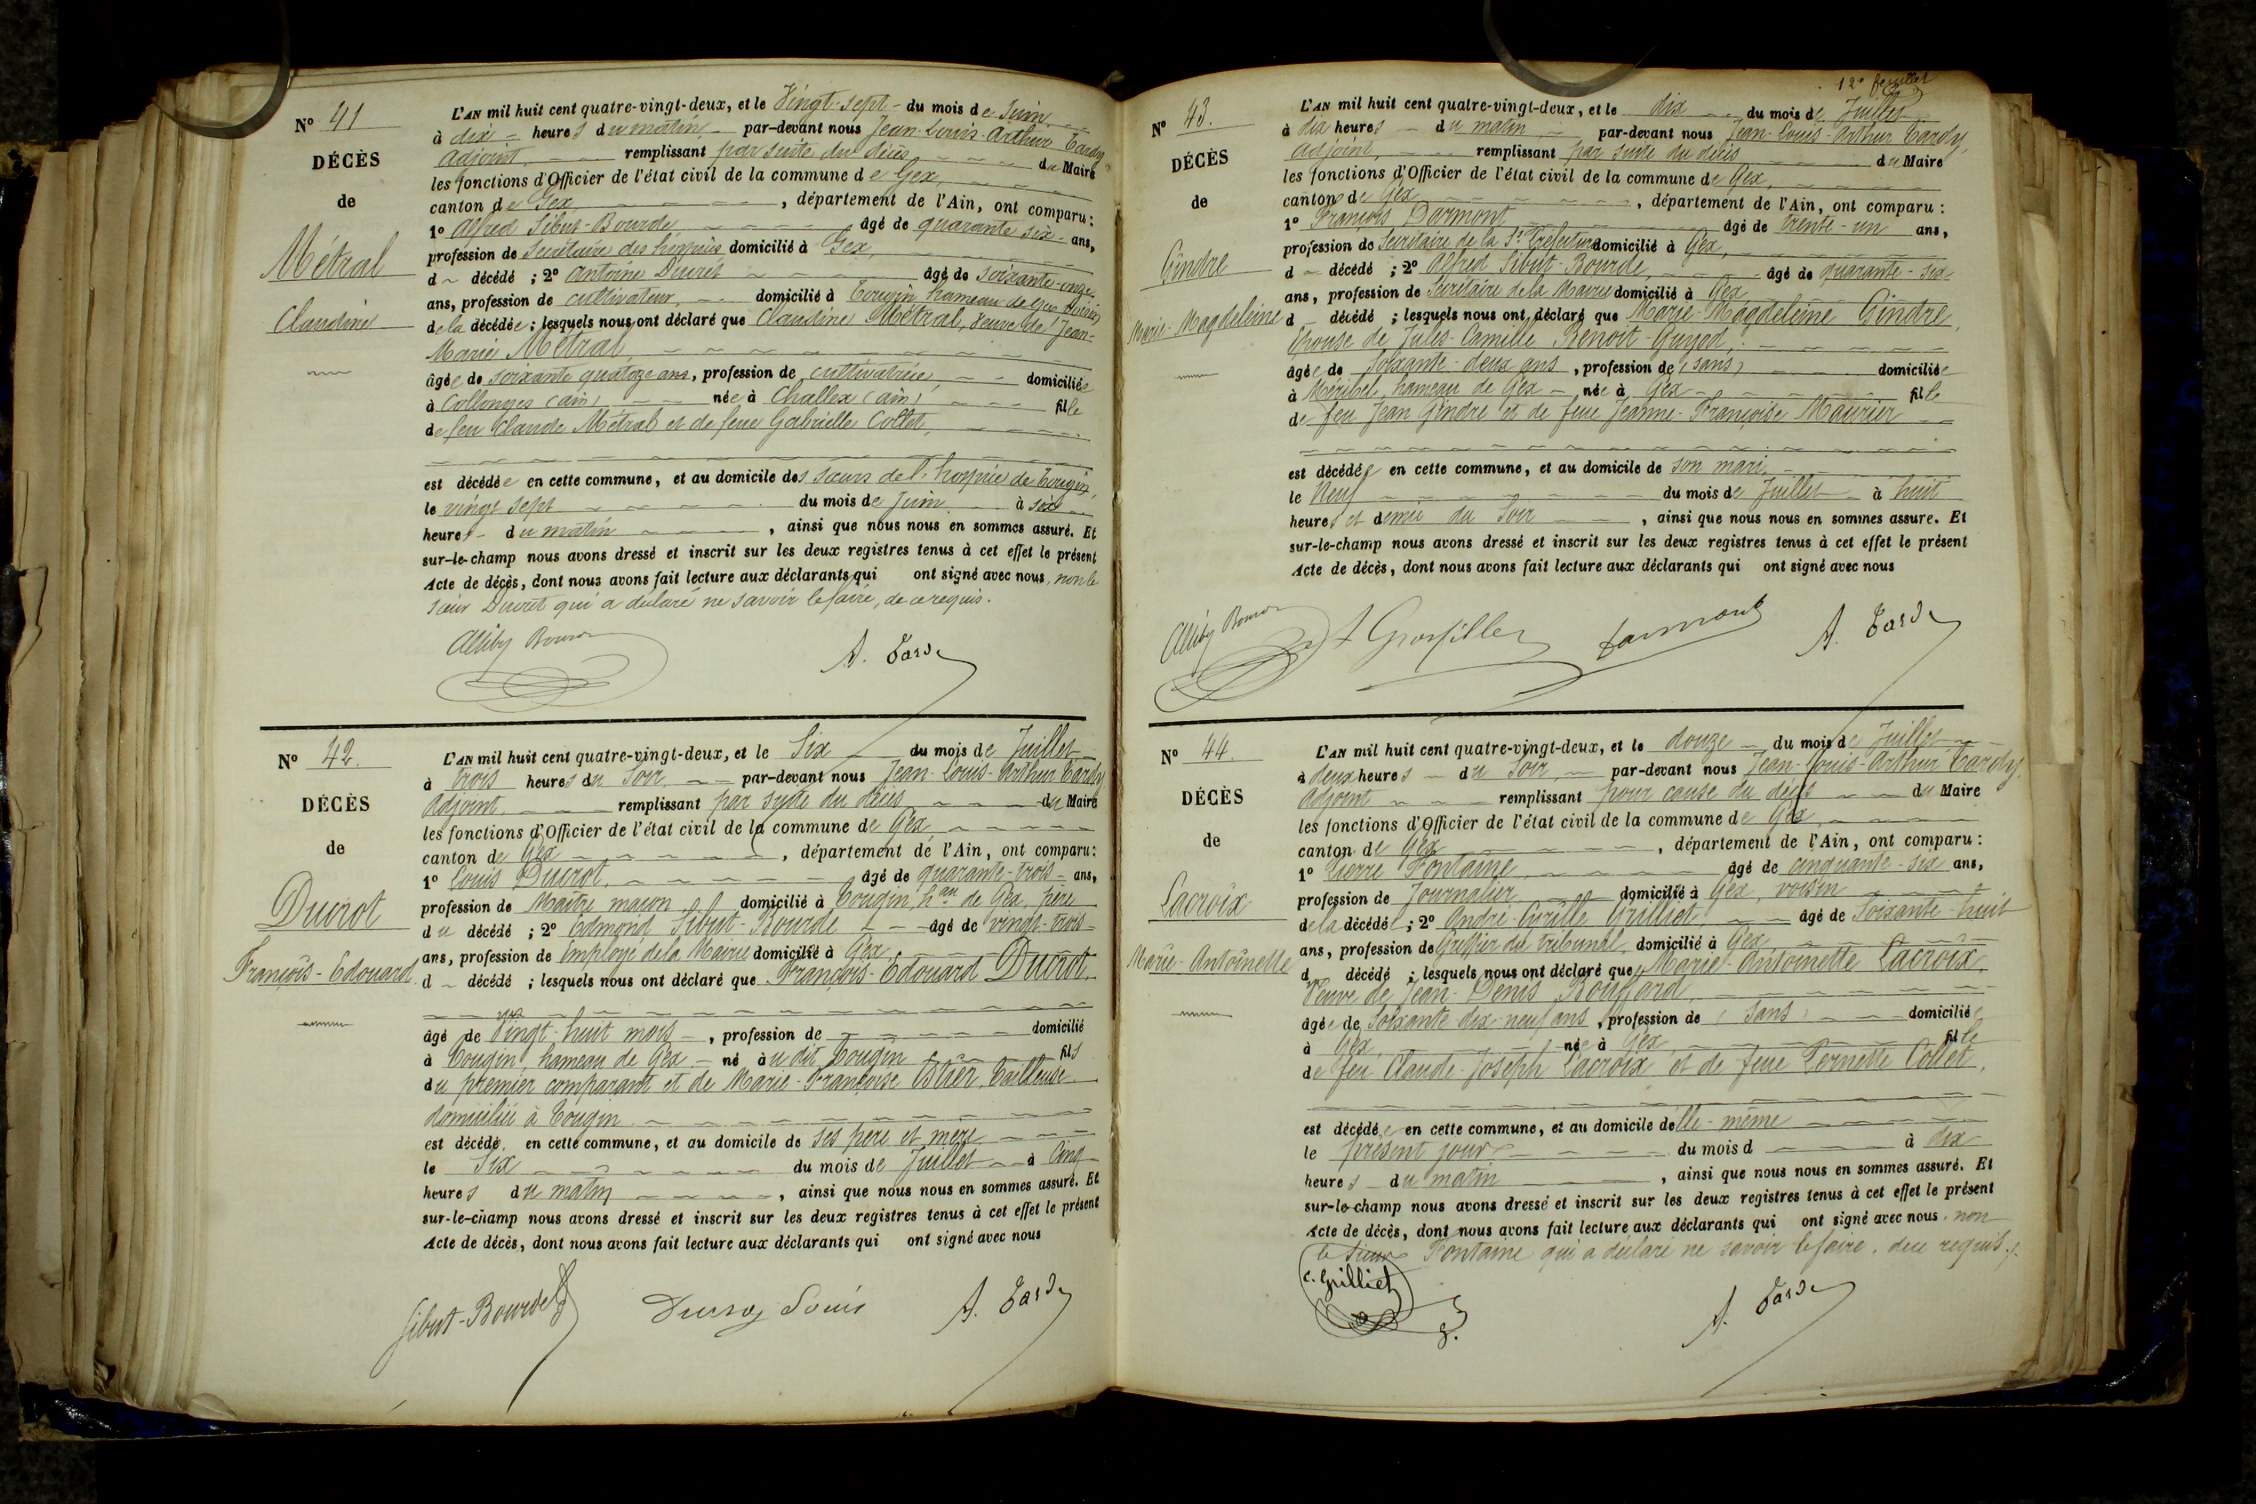 N° 41
DÉCÈS
de
Métral
Claudine
L'AN mil huit cent quatre-vingt-deux, et le Vingt-sept du mois de Juin
à dix heures du matin par-devant nous Jean-Louis-Arthur Tardy
adjoint, remplissant par suite du décès du Maire
les fonctions d'Officier de l'état civil de la commune de Gex,
canton de Gex, département de l'Ain, ont comparu :
1° Alfred Sibut-Bourde âgé de quarante six ans,
profession de Secrétaire des domicilié à Gex,
d décédé ; 2° Antoine Ducret âgé de soixante-onze
ans, profession de cultivateur, domicilié à Tougin hameau de Gex
de la décédée ; lesquels nous ont déclaré que Claudine Métral, veuve de Jean-
Marie Métral
âgée de soixante quatorze ans, profession de cultivatrice, domiciliée
à Collonges (ain) née à Challex (ain) fille
de feu Claude Métral et de feue Gabrielle Collet,
est décédée en cette commune, et au domicile des sœurs de l'hospice de Tougin,
le vingt sept du mois de Juin à six
heures du matin, ainsi que nous nous en sommes assuré. Et
sur-le-champ nous avons dressé et inscrit sur les deux registres tenus à cet effet le présent
Acte de décès, dont nous avons fait lecture aux déclarants qui ont signé avec nous, non le
sieur Ducret qui a déclaré ne savoir le faire, de ce requis.
A. Tardy
N° 42.
DÉCÈS
de
Ducrot
François-Edouard
L'AN mil huit cent quatre-vingt-deux, et le Six du mois de Juillet
à trois heures du Soir par-devant nous Jean-Louis-Arthur Tardy
Adjoint remplissant par suite du décès du Maire
les fonctions d'Officier de l'état civil de la commune de Gex,
canton de Gex, département de l'Ain, ont comparu :
1° Louis Ducrot, âgé de quarante-trois ans,
profession de Maître maçon domicilié à Tougin, h.au de Gex, père
du décédé ; 2° Edmond Sibut-Bourde âgé de vingt-trois
ans, profession de Employé de la Mairie domicilié à Gex,
d décédé ; lesquels nous ont déclaré que François-Edouard Ducrot,
âgé de Vingt-huit mois, profession de domicilié
à Tougin, hameau de Gex né au dit Tougin fils
du premier comparant et de Marie-Françoise Estier, Tailleuse
domiciliée à Tougin
est décédé en cette commune, et au domicile de ses père et mère
le Six du mois de Juillet à Cinq
heures du matin, ainsi que nous nous en sommes assuré. Et
sur-le-champ nous avons dressé et inscrit sur les deux registres tenus à cet effet le présent
Acte de décès, dont nous avons fait lecture aux déclarants qui ont signé avec nous
Sibut-Bourde Louis A. Tardy
12e feuillet
N° 43.
DÉCÈS
de
Gindre
Marie-Magdeleine
L'AN mil huit cent quatre-vingt-deux, et le dix du mois de Juillet
à dix heures du matin par-devant nous Jean-Louis-Arthur Tardy,
adjoint, remplissant par suite du décès du Maire
les fonctions d'Officier de l'état civil de la commune de Gex,
canton de Gex, département de l'Ain, ont comparu :
1° François Darmont âgé de trente-un ans,
profession de Secrétaire de la Ss Préfecture domicilié à Gex,
d décédé ; 2° Alfred Sibut-Bourde, âgé de quarante-six
ans, profession de Secrétaire de la Mairie domicilié à Gex
d décédé ; lesquels nous ont déclaré que Marie-Magdeleine Gindre,
Epouse de Jules-Camille Benoit-Guyod,
âgée de Soixante-deux ans, profession de (sans) domiciliée
à Méribel, hameau de Gex née à Gex fille
de feu Jean Gindre et de feue Jeanne-Françoise Maurier
est décédée en cette commune, et au domicile de son mari
le Neuf du mois de Juillet à huit
heures et demie du Soir, ainsi que nous nous en sommes assuré. Et
sur-le-champ nous avons dressé et inscrit sur les deux registres tenus à cet effet le présent
Acte de décès, dont nous avons fait lecture aux déclarants qui ont signé avec nous
Darmont A. Tardy
N° 44.
DÉCÈS
de
Lacroix
Marie-Antoinette
L'AN mil huit cent quatre-vingt-deux, et le douze du mois de Juillet
à deux heures du Soir, par-devant nous Jean-Louis-Arthur Tardy,
Adjoint remplissant pour cause du décès du Maire
les fonctions d'Officier de l'état civil de la commune de Gex,
canton de Gex, département de l'Ain, ont comparu :
1° Pierre Fontaine, âgé de cinquante-six ans,
profession de Journalier domicilié à Gex, voisin
de la décédée ; 2° André-Cyrille Grilliet, âgé de Soixante-huit
ans, profession de Greffier du tribunal, domicilié à Gex
d décédé ; lesquels nous ont déclaré que Marie-Antoinette Lacroix,
Veuve de Jean-Denis
âgée de Soixante dix-neuf ans, profession de (sans) domiciliée
à Gex née à Gex fille
de feu Claude-Joseph Lacroix et de feue Pernette Collet,
est décédée en cette commune, et au domicile d'elle-même
le présent jour du mois d à dix
heures du matin, ainsi que nous nous en sommes assuré. Et
sur-le-champ nous avons dressé et inscrit sur les deux registres tenus à cet effet le présent
Acte de décès, dont nous avons fait lecture aux déclarants qui ont signé avec nous, non
le sieur Fontaine qui a déclaré ne savoir le faire, de ce requis.
C. Grilliet A. Tardy